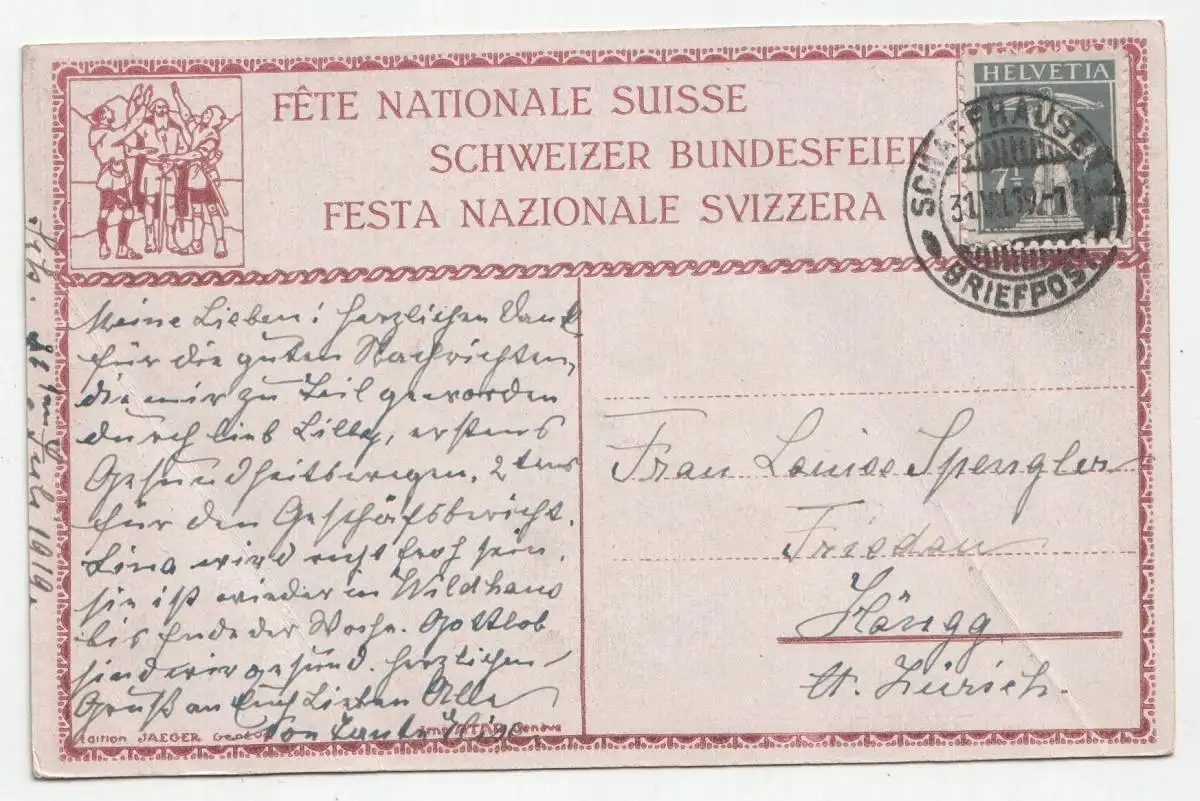 FÊTE NATIONALE SUISSE
SCHWEIZER BUNDESFEIER
FESTA NAZIONALE SVIZZERA
HELVETIA
7½
SCHAFFHAUSEN 1
BRIEFPOST
Meine Lieben! Herzlichen Dank
für die guten Nachrichten,
die mir zu Teil geworden
durch lieb Lilly, erstens
Gesundheitswegen. 2tens
für den Geschäfsbericht.
Lina wird recht froh sein.
sie ist wieder in Wildhaus
bis Ende der Woche. Gottlob
sind wir gesund. Herzlichen
Gruß an Euch Lieben Alle
von Tante
Juli 1919.
Frau Louise Spengler
Friedau
Höngg
Kt. Zürich.
Edition JAEGER Genève
Genève